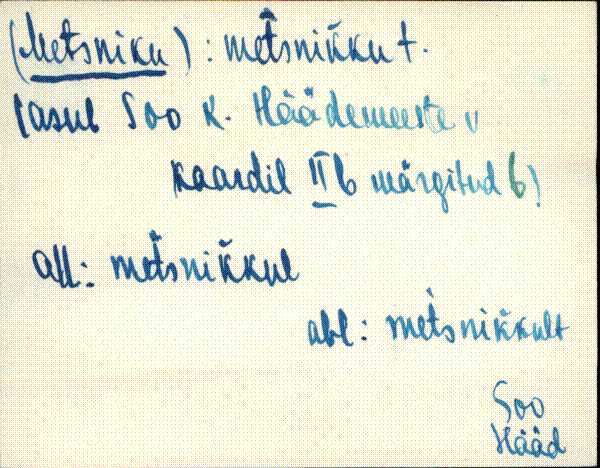 (Metsniku) : met̀snik̆ku t.
(asub Soo k. Häädemeeste v
kaardil IIb märgitud 6)
all: met̀snik̆kul
abl: met̀snik̆kult
Soo
Hääd